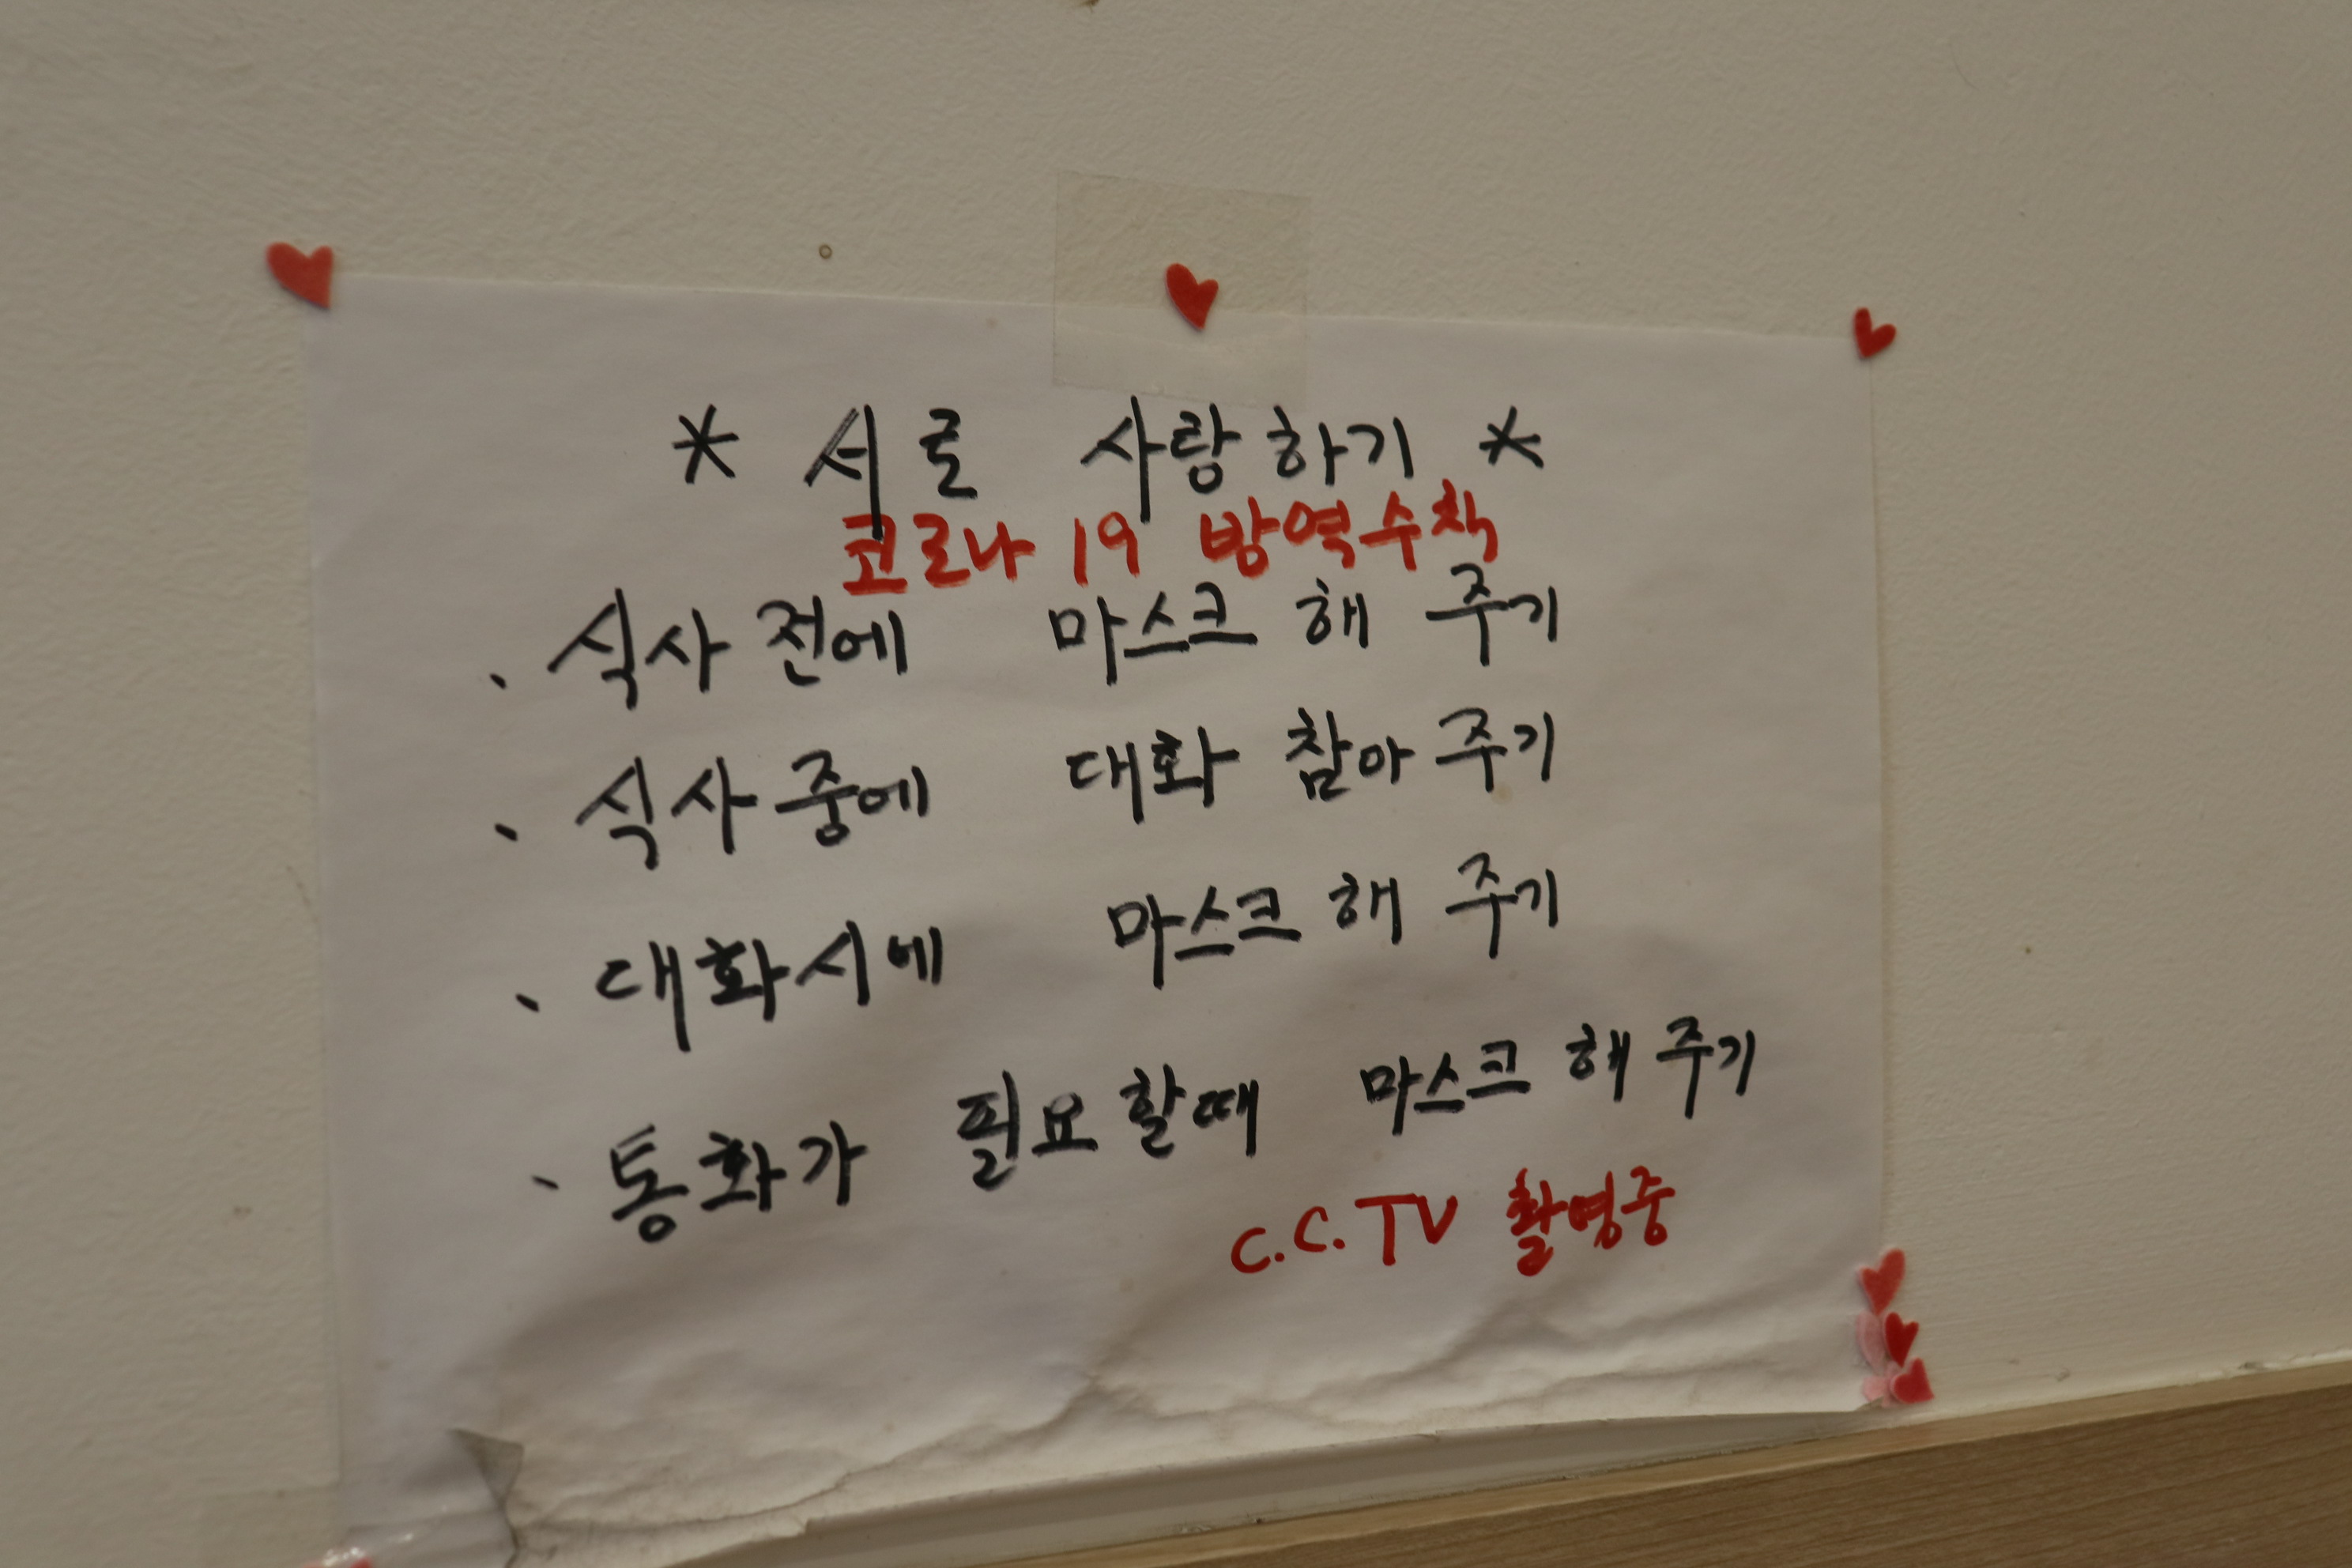 * 서로 사랑하기 *
코로나 19 방역수칙
· 식사 전에 마스크 해 주기
· 식사중에 대화 참아 주기
· 대화시에 마스크 해 주기
· 통화가 필요할때 마스크 해 주기
C.C.TV 촬영중